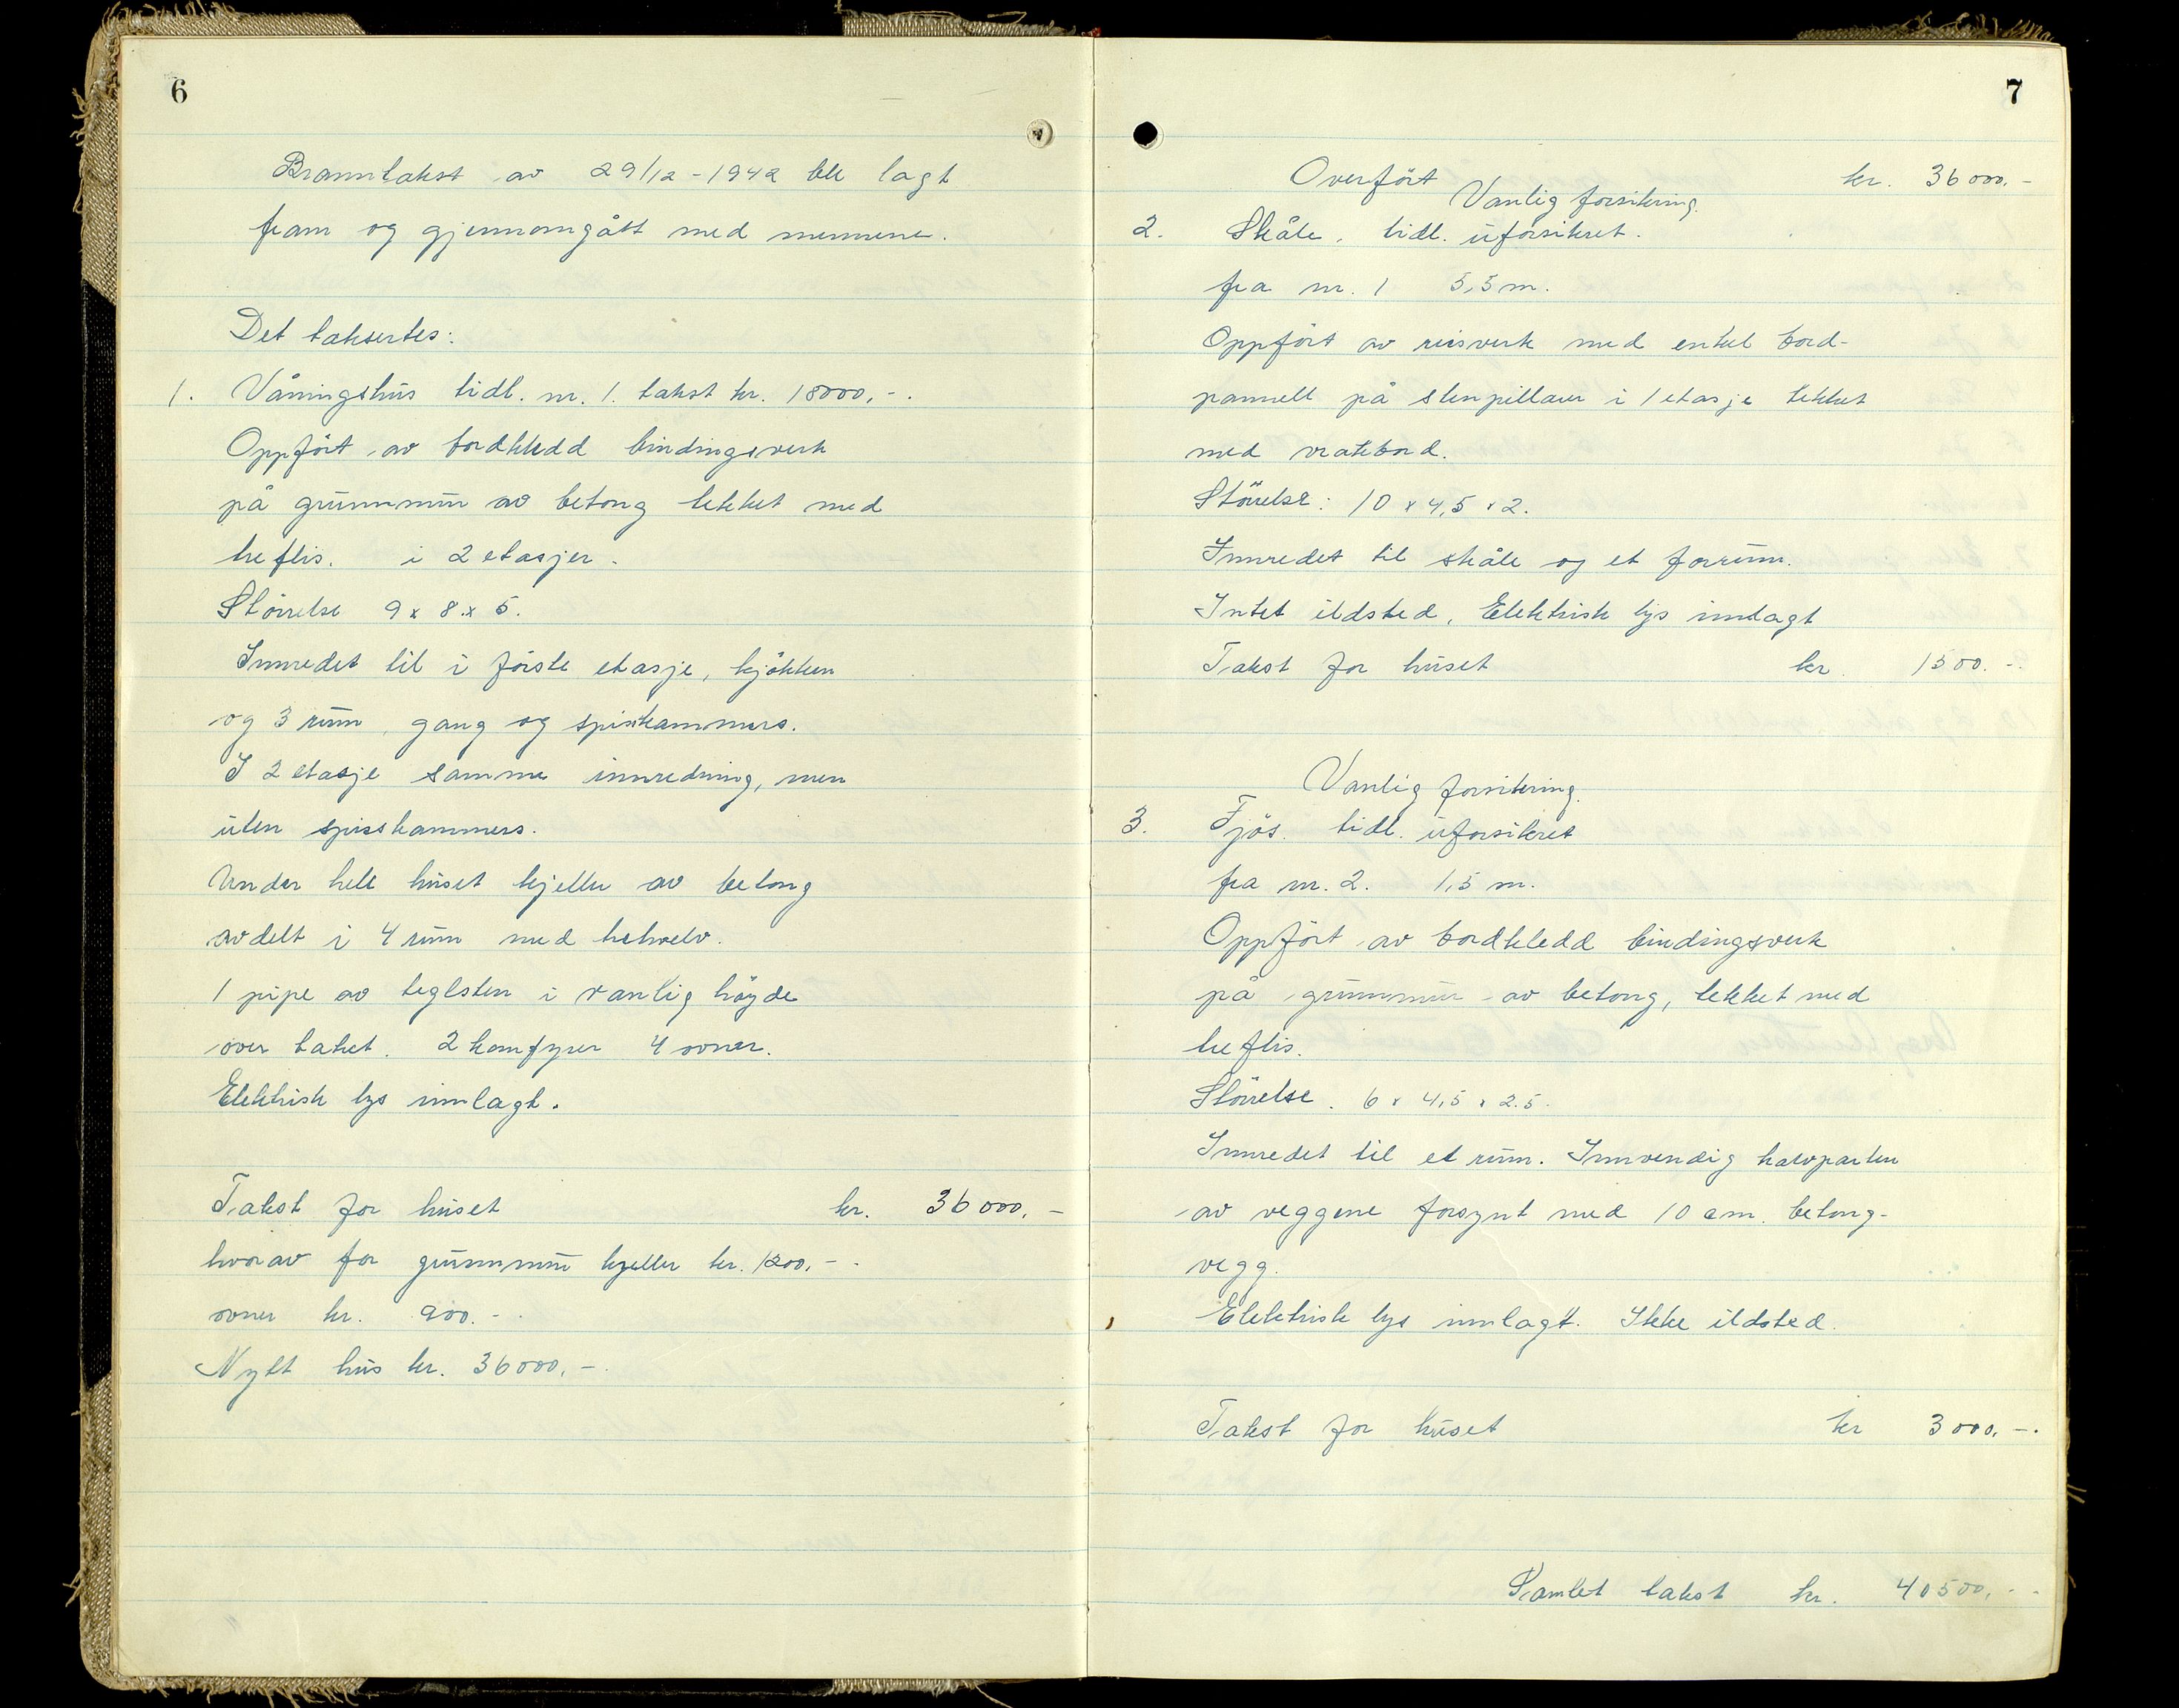 6
Branntakst av 29/12-1942 ble lagt
fram og gjennomgått med mennene.
Det taksertes:
1. Våningshus tidl. nr. 1. takst kr. 18000,-.
Oppfört av bordkledd bindingsverk
på grunnmur av betong tekket med
treflis. i 2 etasjer.
Störrelse 9 x 8 x 5.
Innredet til i förste etasje, kjökken
og 3 rum, gang og spiskammers.
I 2 etasje samme innredning, men
uten spisskammers.
Under hele huset kjeller av betong
avdelt i 4 rum med trehvelv.
1 pipe av teglsten i vanlig höyde
over taket. 2 komfyrer 4 ovner.
Elektrisk lys innlagt.
Takst for huset kr. 36000,-
hvorav for grunnmur kjeller kr. 1200,-.
ovner kr. 900.-.
Nytt hus kr. 36000,-.
7
Overfört kr. 36000.-
Vanlig forsikring.
2. Skåle, tidl. uforsikret.
fra nr. 1 5,5 m.
Oppfört av reisverk med enkel bord-
pannell på stenpillarer i 1 etasje tekket
med vrakbord.
Störrelse: 10 x 4,5 x 2.
Innredet til skåle og et forrum.
Intet ildsted, Elektrisk lys innlagt
Takst for huset kr. 1500.-.
Vanlig forsikring.
3. Fjös. tidl. uforsikret
fra nr. 2. 1,5 m.
Oppfört av bordkledd bindingsverk
på grunnmur av betong, tekket med
treflis.
Störrelse. 6 x 4,5 x 2.5.
Innredet til et rum. Innvendig halvparten
av veggene forsynt med 10 cm. betong-
vegg.
Elektrisk lys innlagt. Ikke ildsted.
Takst for huset kr 3000.-.
Samlet takst kr. 40500.-